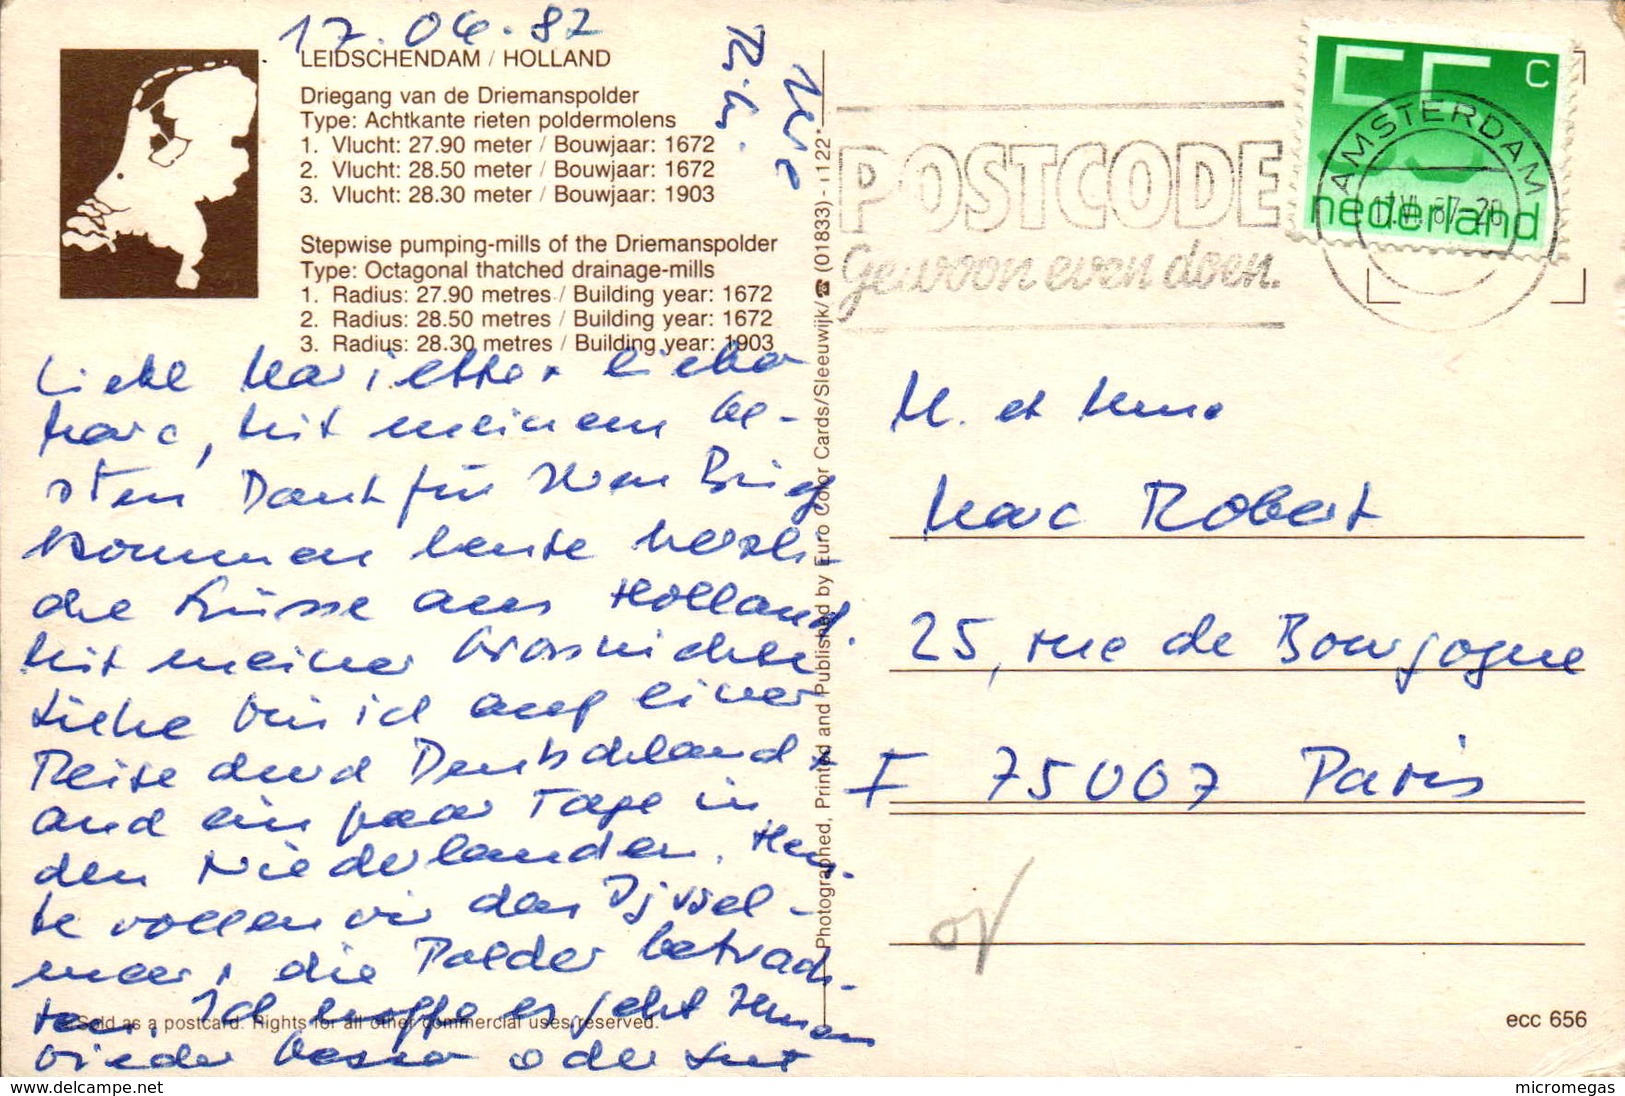 17.06.87
LEIDSCHENDAM / HOLLAND
Driegang van de Driemanspolder
Type: Achtkante rieten poldermolens
1. Vlucht: 27.90 meter / Bouwjaar: 1672
2. Vlucht: 28.50 meter / Bouwjaar: 1672
3. Vlucht: 28.30 meter / Bouwjaar: 1903
Stepwise pumping-mills of the Driemanspolder
Type: Octagonal thatched drainage-mills
1. Radius: 27.90 metres / Building year: 1672
2. Radius: 28.50 metres / Building year: 1672
3. Radius: 28.30 metres / Building year: 1903
Liebe Mariette, lieber
Marc, mit meinem be-
sten Dank für Ihren Brief
kommen heute herzli-
che Grüsse aus Holland.
Mit meiner Grossnichte
bin ich auf einer
Reise durch Deutschland
und ein paar Tage in
den Niederlanden. Heu-
te wollen wir das Ijssel-
meer, die Polder betrach-
ten. Ich hoffe es geht Ihnen
wieder besser oder gut
Ihre
Photographed, Printed and Published by Euro Color Cards/Sleeuwijk/☎ (01833) - 1122*
Sold as a postcard. Rights for all other commercial uses reserved.
POSTCODE
Gewoon even doen.
55 c
nederland
AMSTERDAM
M. et Mme
Marc Robert
25, rue de Bourgogne
F 75007 Paris
ecc 656
https://www.delcampe.net
micromegas